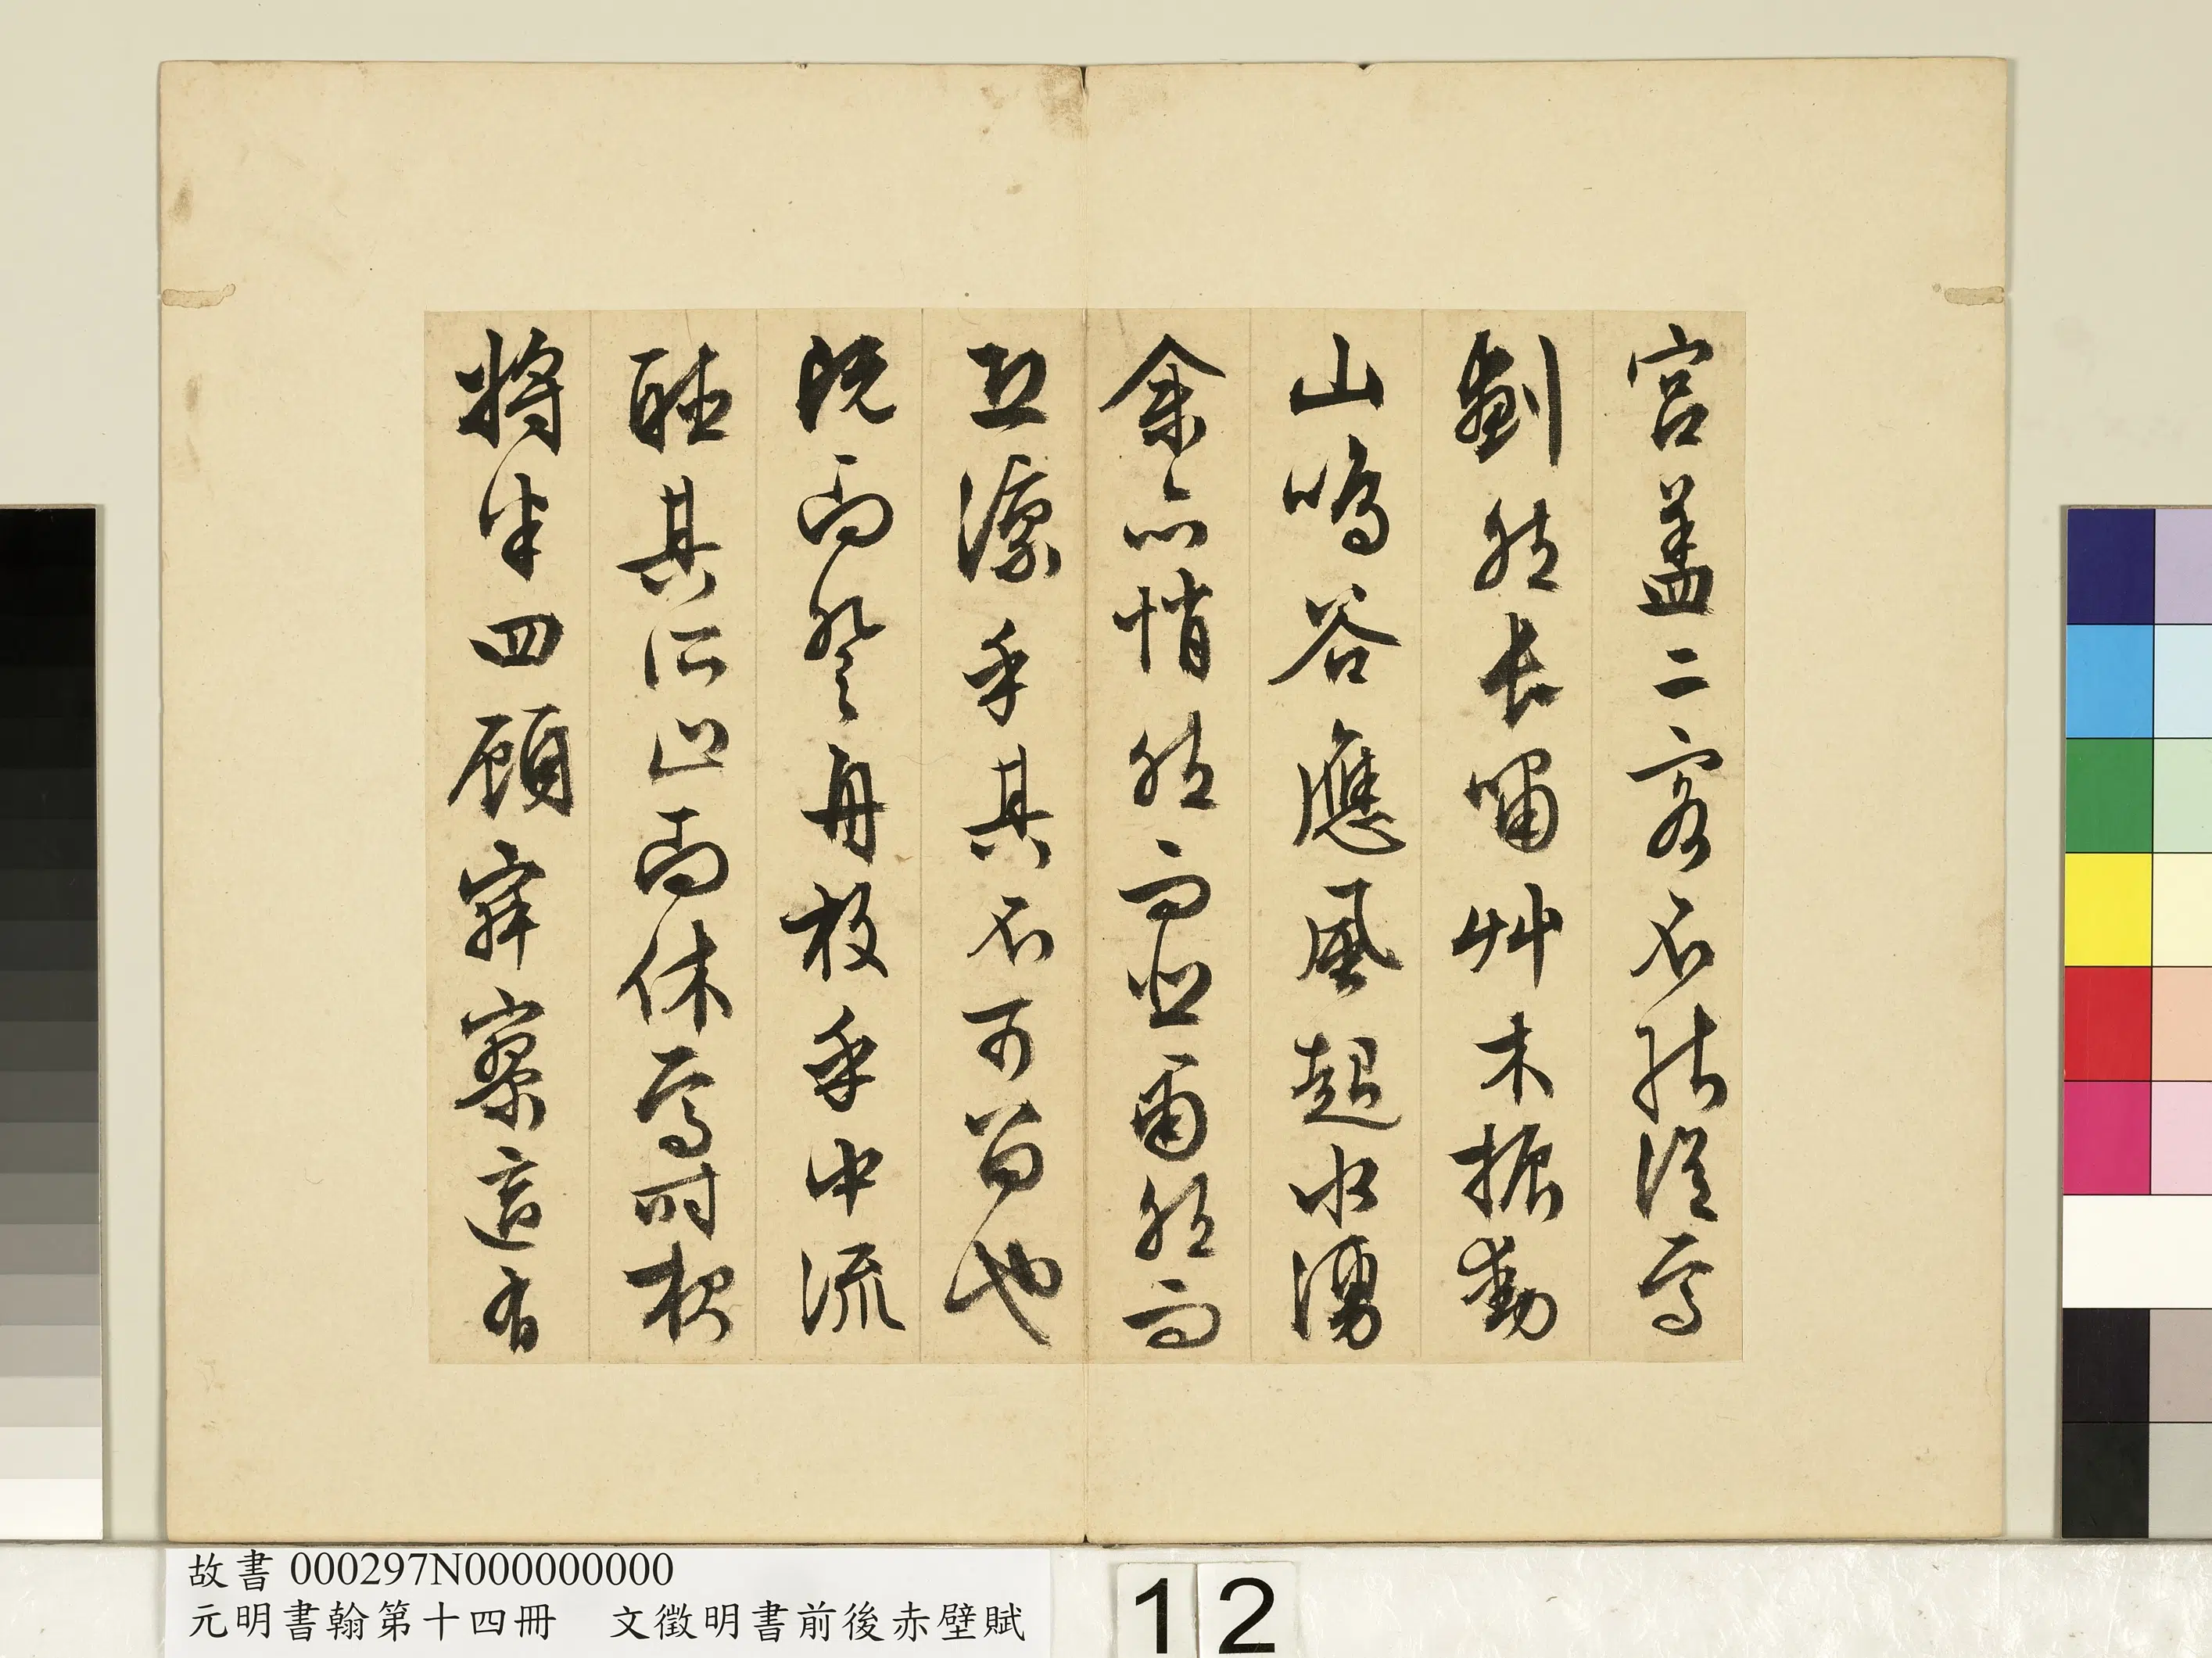 宮蓋二客不能從焉
劃然長嘯艸木振動
山鳴谷應風起水湧
余亦悄然而悲肅然而
恐凜乎其不可留也
既而登舟放乎中流
聽其所止而休焉時夜
將半四顧寂寥適有
故書 000297N000000000
元明書翰第十四冊 文徵明書前後赤壁賦
12